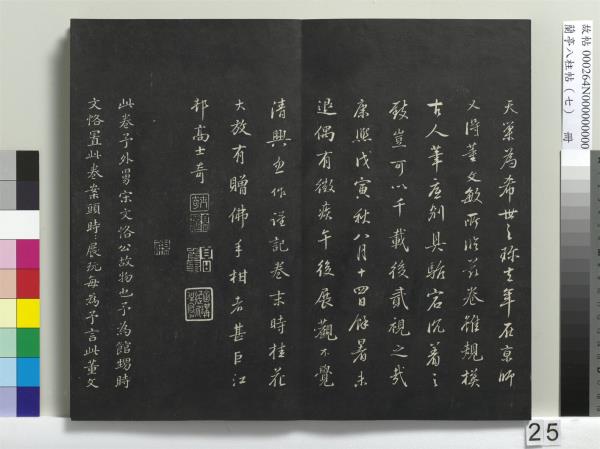 故帖 000264N000000000
蘭亭八柱帖（七） 冊
天策為希世之珍去年在京師
又得董文敏所臨茲卷雖規模
古人筆意別具駘宕沉着之
致豈可以千載後貳視之哉
康熙戊寅秋八月十四日餘暑未
退偶有微疾午後展觀不覺
清興 作謹記卷末時桂花
大放有贈佛手柑者甚巨江
邨高士奇
此卷予外舅宋文恪公故物也予為館甥時
文恪置此卷案頭時展玩每為予言此董文
25